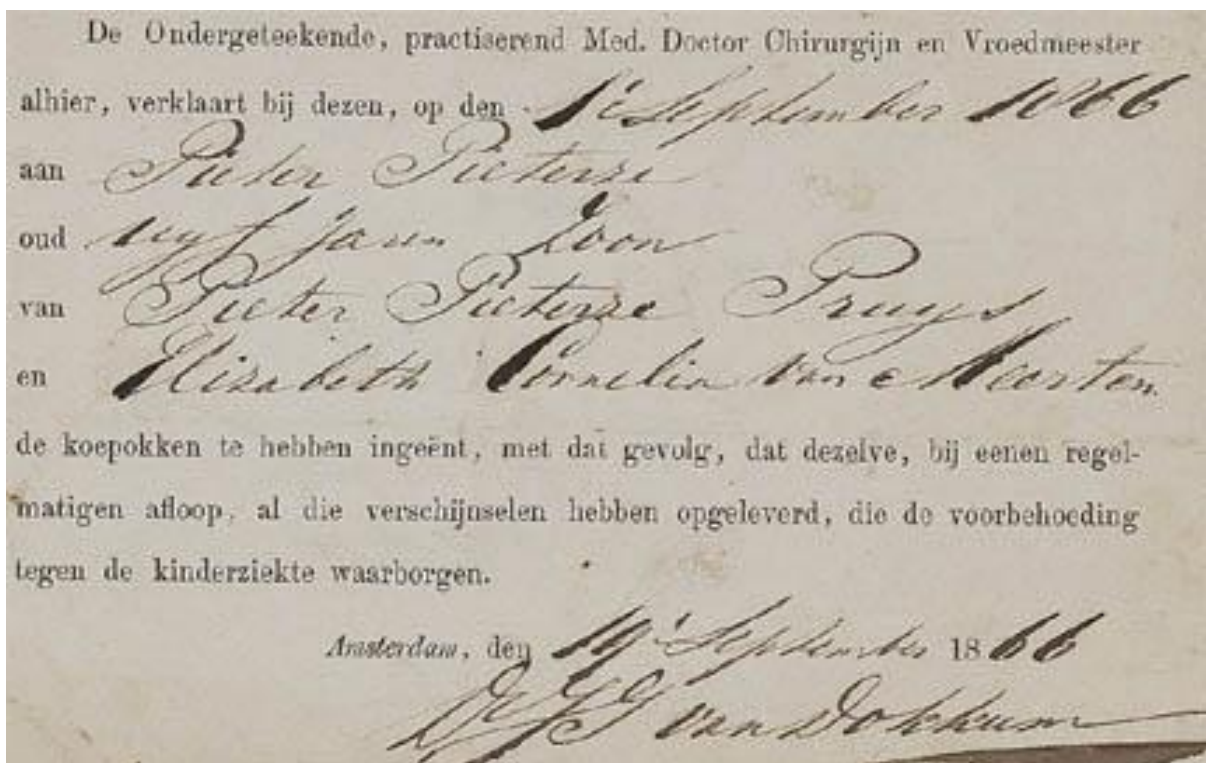 De Ondergeteekende, practiserend Med. Doctor Chirurgijn en Vroedmeester
alhier, verklaart bij dezen, op den 1e September 1866
aan Pieter Pieterze
oud vyf jaren Zoon
van Pieter Pieterze Pruys
en Elizabeth Cornelia van Meerten
de koepokken te hebben ingeënt, met dat gevolg, dat dezelve, bij eenen regel-
matigen afloop, al die verschijnselen hebben opgeleverd, die de voorbehoeding
tegen de kinderziekte waarborgen.
Amsterdam, den 10e September 1866
van Dokkum